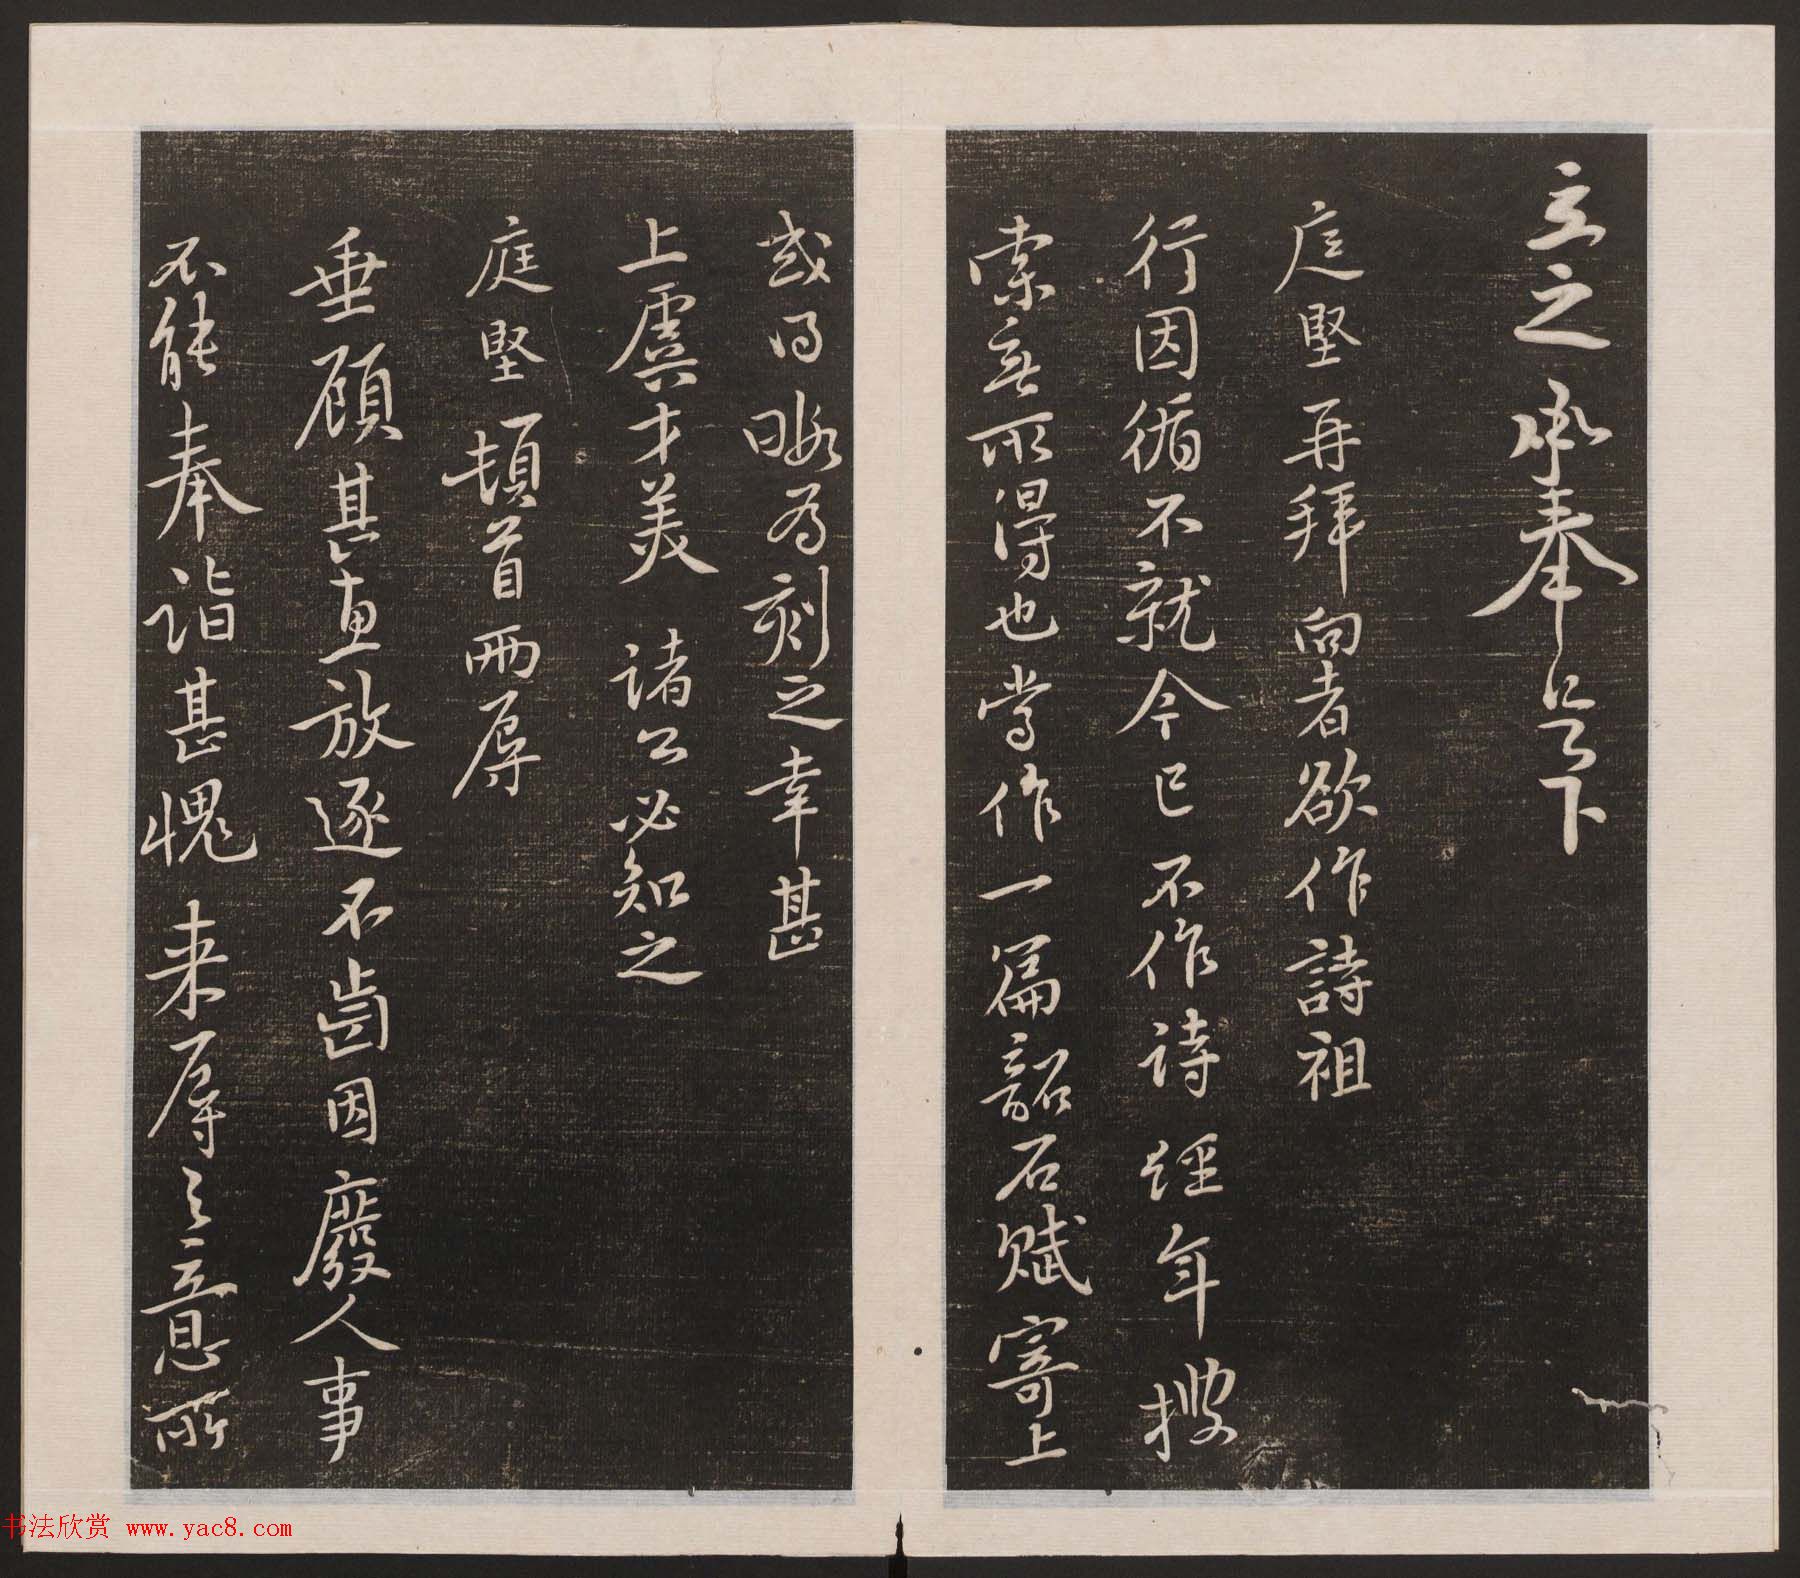 立之承奉足下
庭堅再拜向者欲作詩祖
行因循不就今已不作詩經年搜
索無所得也嘗作一篇韶石賦寄上
或得暇為刻之幸甚
上虞才美諸公必知之
庭堅頓首兩辱
垂顧其直放逐不齒因廢人事
不能奉詣甚愧來辱之意所
书法欣赏 www.yac8.com